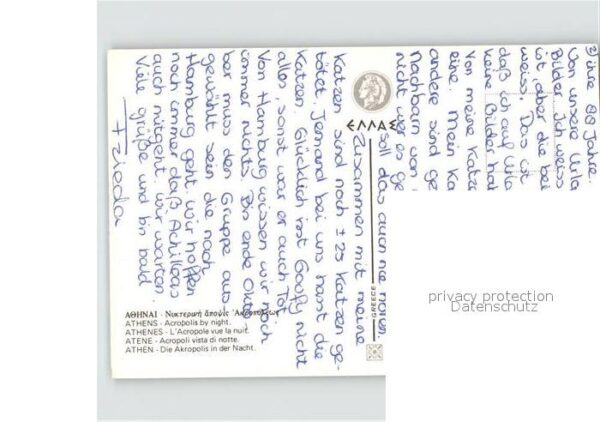 2) ihre 88 Jahre.
Von unsere Urla
Bilder. Ich weiss
ist, aber die bei
weiss. Das ist
daß ich auf Urla
keine Bilder hat
Von meine Katz
eine. Mein Ka
andere sind ge
Nachbarn von
nicht wer es ge
soll das auch nie
Zusammen mit meine
Katzen sind noch ± 25 Katzen ge-
tötet. Jemand bei uns hasst die
Katzen. Glücklich isst Goofy nicht
alles, sonst war er auch Tot.
Von Hamburg wissen wir noch
immer nichts. Bis ende Okto
ber muss den Gruppe aus
gewählt sein die nach
Hamburg geht. Wir hoffen
noch immer daß Achilleas
auch mitgeht. Wir warten.
Viele grüße und bis bald.
Frieda
ΕΛΛΑΣ
GREECE
ΑΘΗΝΑΙ - Νυκτερινή ἄποψις Ἀκροπόλεως
ATHENS - Acropolis by night.
ATHENES - L'Acropole vue la nuit.
ATENE - Acropoli vista di notte.
ATHEN - Die Akropolis in der Nacht.
privacy protection
Datenschutz